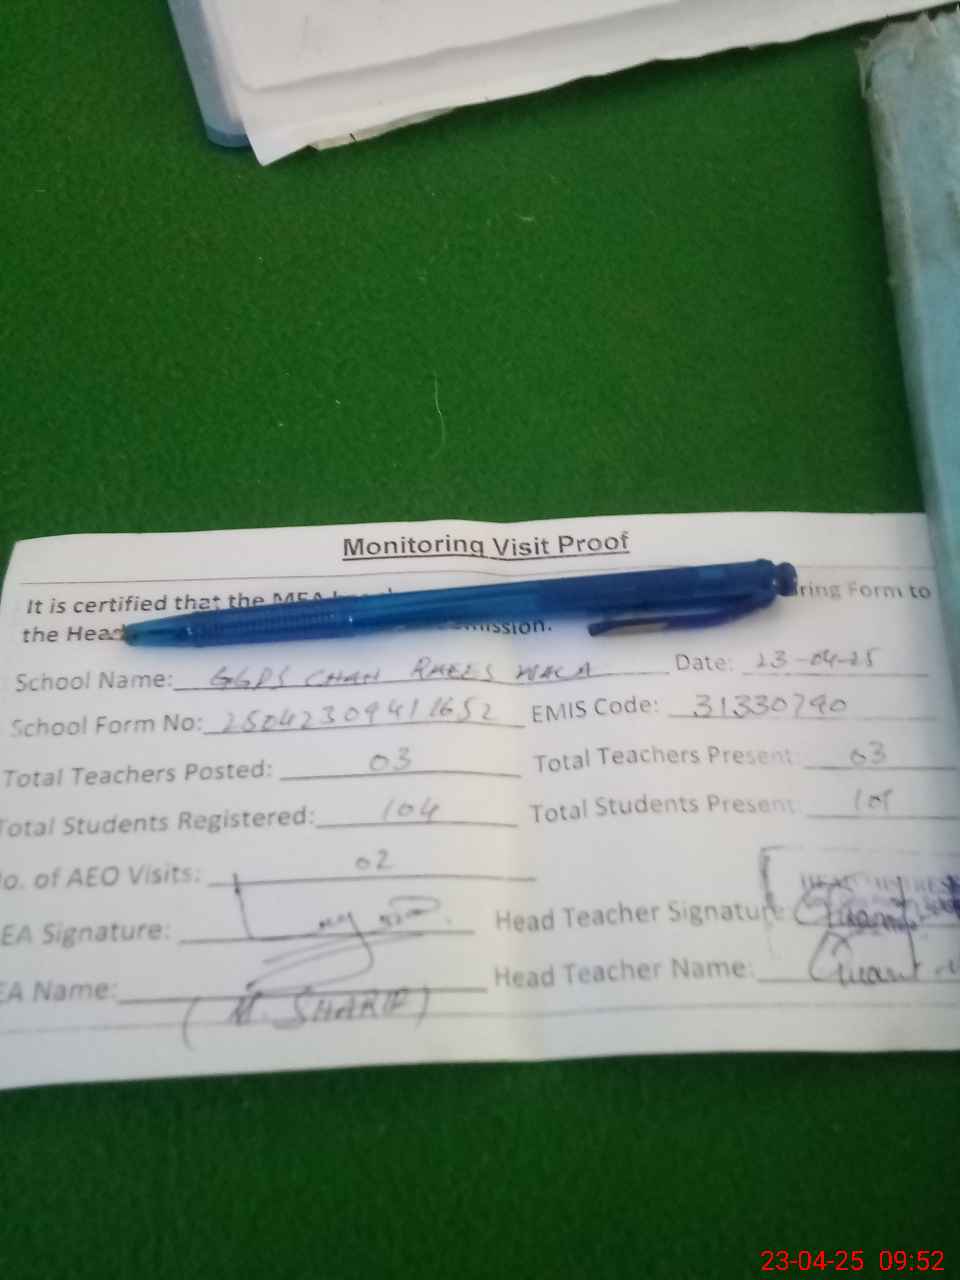 Monitoring Visit Proof
It is certified that the MEA ring Form to
the Head mission.
School Name: GGPS CHAH RAEES WALA Date: 23-04-25
School Form No: 25042309411652 EMIS Code: 31330790
Total Teachers Posted: 03 Total Teachers Present: 03
Total Students Registered: 104 Total Students Present:
o. of AEO Visits: 02
EA Signature: Head Teacher Signature:
EA Name: Head Teacher Name:
(M. SHARIF)
23-04-25 09:52